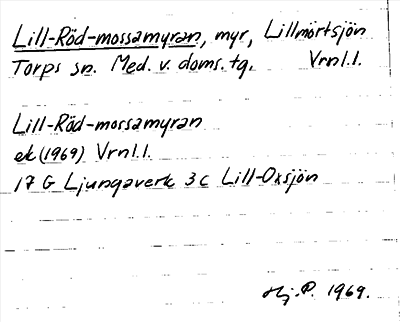 Lill-Röd-mossamyran, myr, Lillmörtsjön
Torps sn. Med. v. doms. tg. Vrnl.l.
Lill-Röd-mossamyran
ek (1969) Vrnl.l.
17 G Ljungaverk 3 c Lill-Oxsjön
Hj. P. 1969.